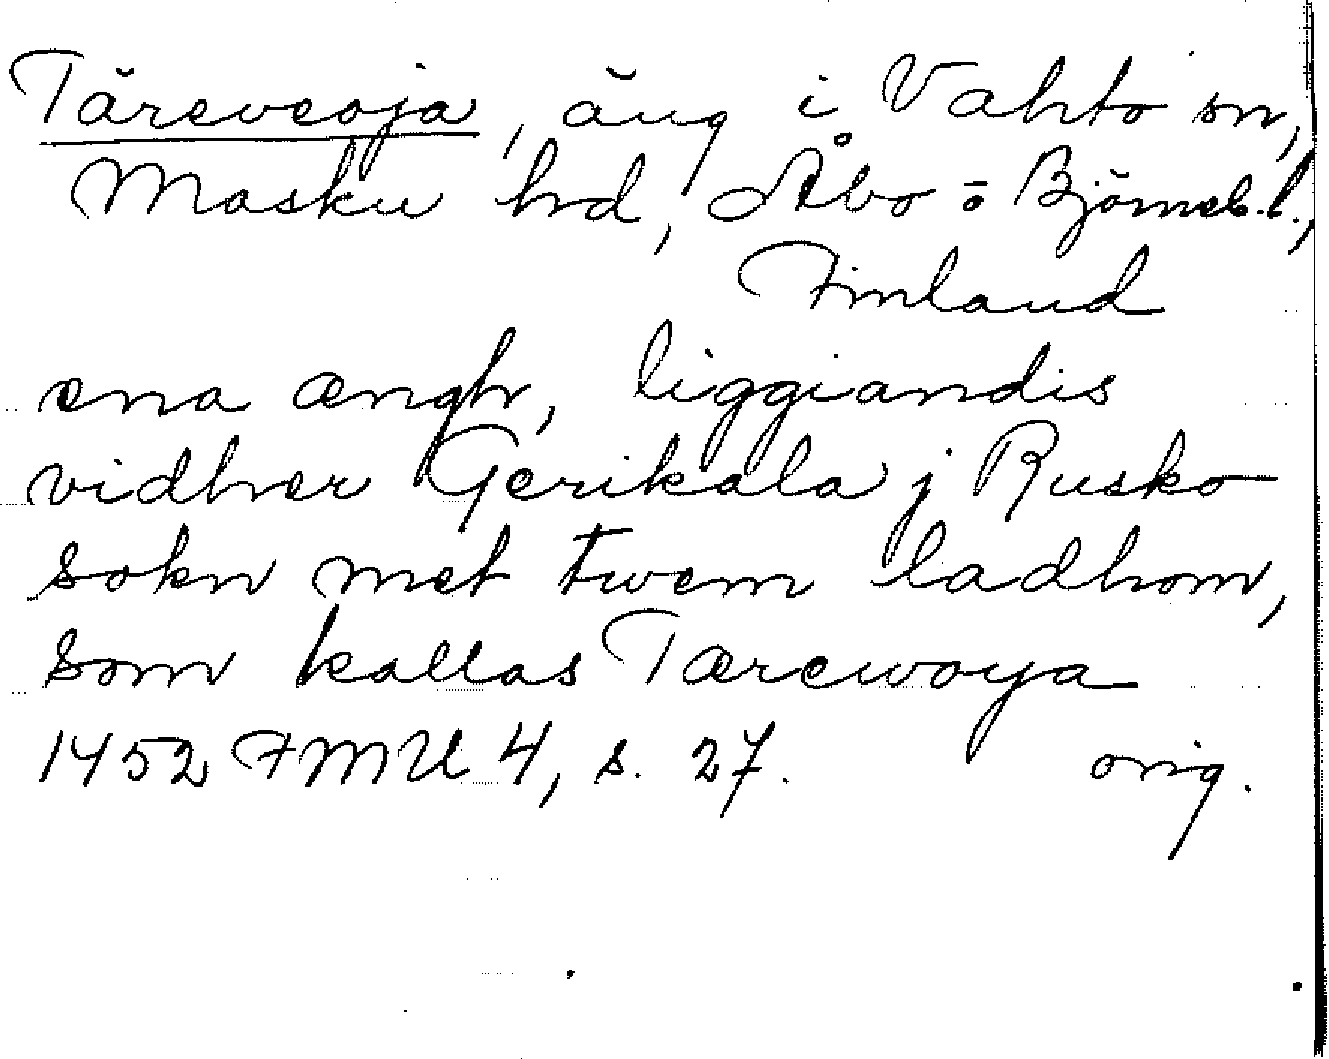 Täreveoja, äng i Vahto sn,
Masku hd, Åbo o Björneb. l.,
Finland
ena ængh, liggiandis
vidher Gerikala j Rusko
sokn met twem ladhom,
som kallas Tærewoya
1452 FMU 4, s. 27. orig.